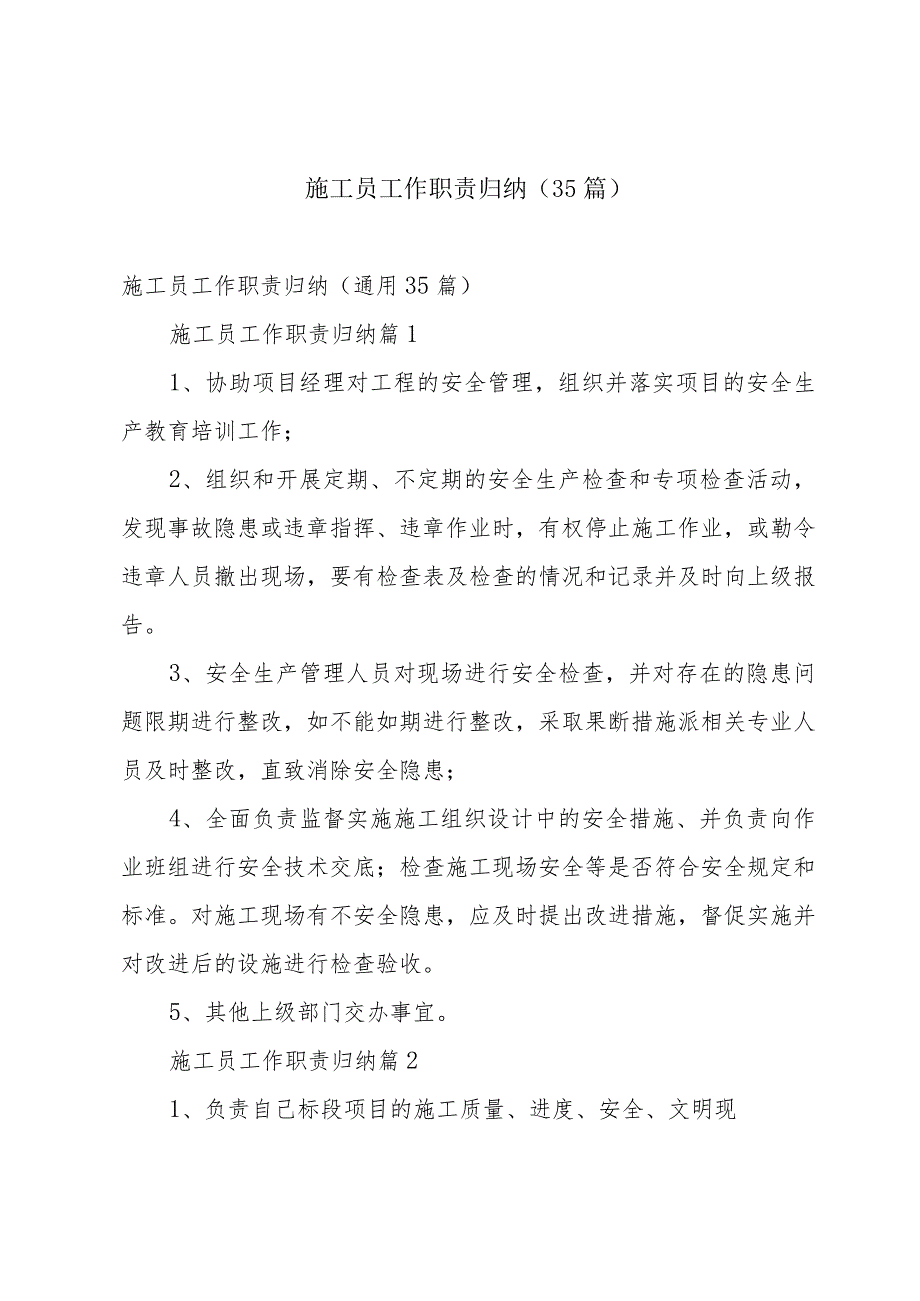 施工员工作职责归纳（35 篇）
施工员工作职责归纳（通用 35 篇）
施工员工作职责归纳篇 1
1、协助项目经理对工程的安全管理，组织并落实项目的安全生
产教育培训工作；
2、组织和开展定期、不定期的安全生产检查和专项检查活动，
发现事故隐患或违章指挥、违章作业时，有权停止施工作业，或勒令
违章人员撤出现场，要有检查表及检查的情况和记录并及时向上级报
告。
3、安全生产管理人员对现场进行安全检查，并对存在的隐患问
题限期进行整改，如不能如期进行整改，采取果断措施派相关专业人
员及时整改，直致消除安全隐患；
4、全面负责监督实施施工组织设计中的安全措施、并负责向作
业班组进行安全技术交底；检查施工现场安全等是否符合安全规定和
标准。对施工现场有不安全隐患，应及时提出改进措施，督促实施并
对改进后的设施进行检查验收。
5、其他上级部门交办事宜。
施工员工作职责归纳篇 2
1、负责自己标段项目的施工质量、进度、安全、文明现